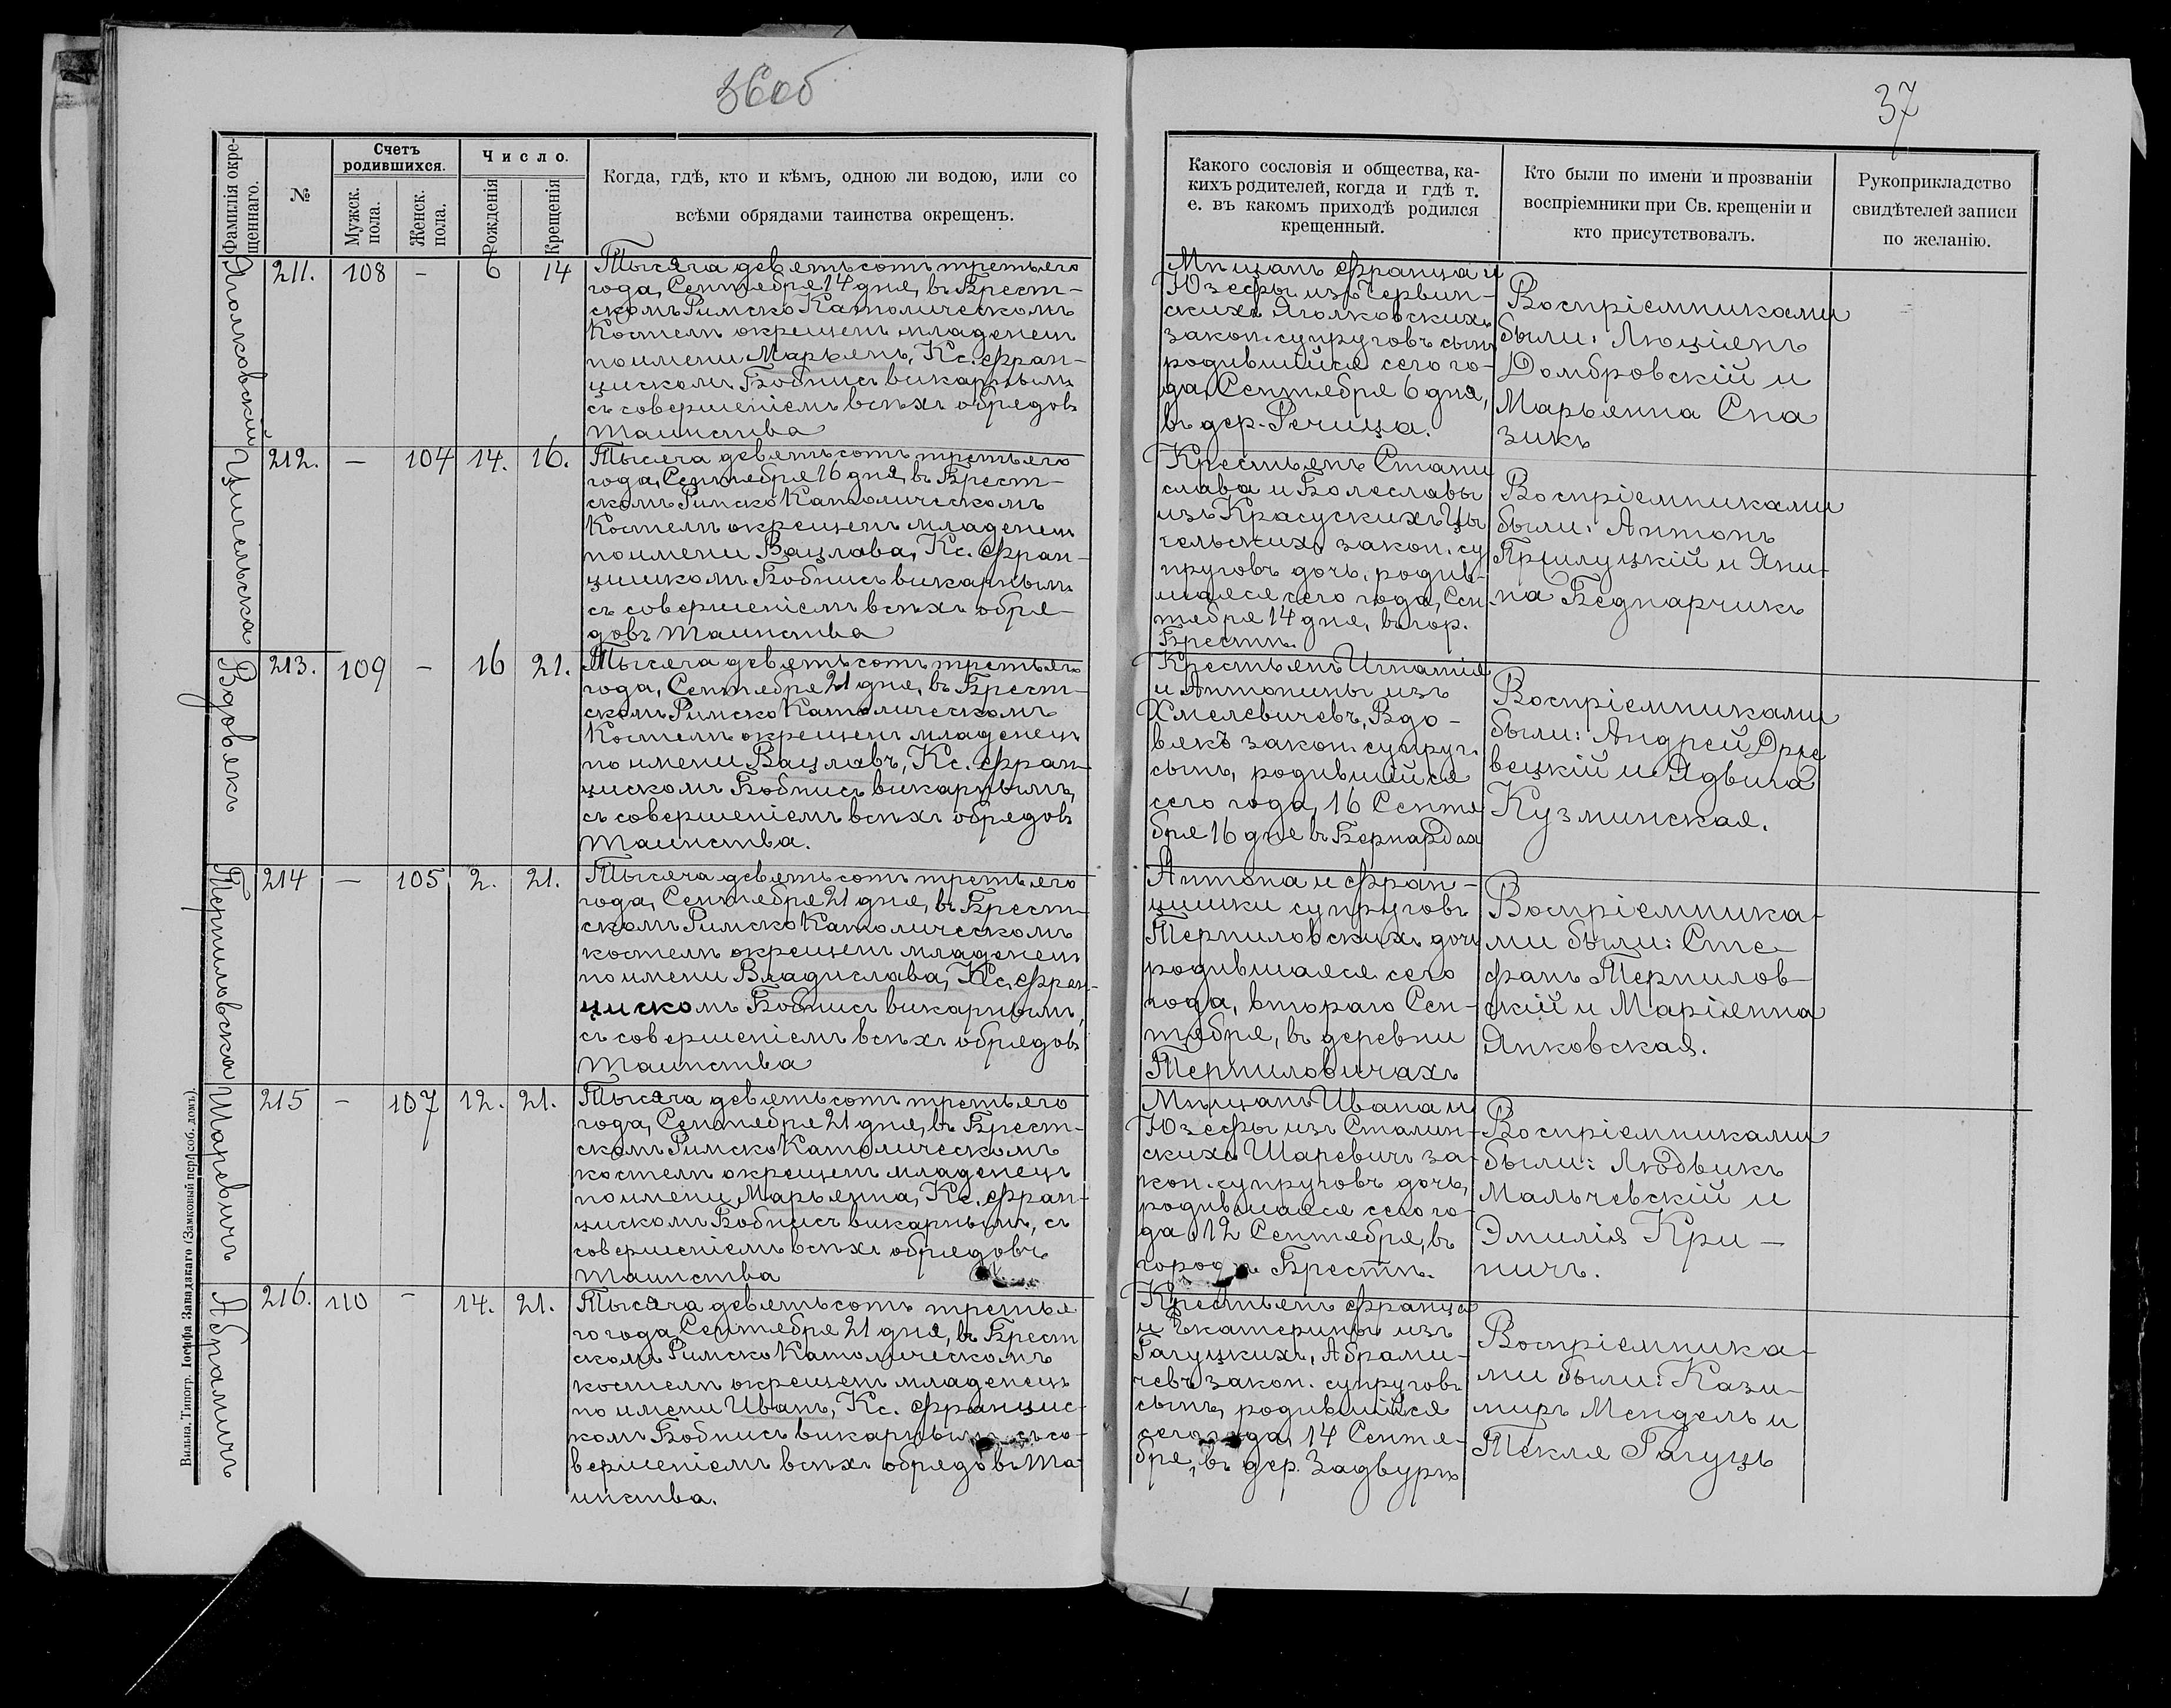 36об
37
Фамилія окре-
щеннаго.
№
Счетъ
родившихся.
Мужск.
пола.
Женск.
пола.
Число.
Рожденія
Крещенія
Когда, гдѣ, кто и кѣмъ, одною ли водою, или со
всѣми обрядами таинства окрещенъ.
Какого сословія и общества, ка-
кихъ родителей, когда и гдѣ т.
е. въ какомъ приходѣ родился
крещенный.
Кто были по имени и прозваніи
воспріемники при Св. крещеніи и
кто присутствовалъ.
Рукоприкладство
свидѣтелей записи
по желанію.
Яголковскій
211. 108 - 6 14
Тысяча девятьсотъ третьяго
года, Сентября 14 дня, въ Брест-
скомъ Римско Католическомъ
Костелѣ окрещенъ младенецъ
по имени Марьянъ, Кс. Фран-
цискомъ Бобнисъ викарнымъ
съ совершеніемъ всѣхъ обрядовъ
таинства
Мѣщанъ Франца и
Юзефы изъ Червин-
скихъ Яголковскихъ
закон. супруговъ сынъ
родившійся сего го-
да, Сентября 6 дня,
въ дер. Речица.
Воспріемниками
были: Люціянъ
Домбровскій и
Марьянна Спа
зикъ
Цигельска
212. - 104 14. 16.
Тысяча девятьсотъ третьяго
года, Сентября 16 дня, въ Брест-
скомъ Римско Католическомъ
Костелѣ окрещенъ младенецъ
по имени Вацлава, Кс. Фран-
цишкомъ Бобнисъ викарнымъ
съ совершеніемъ всѣхъ обря-
довъ таинства
Крестьянъ Стани
слава и Болеславы
изъ Красускихъ Цы
гельскихъ закон. су
пруговъ дочь, родив-
шаяся сего года, Сен
тября 14 дня, въ гор.
Брестѣ.
Воспріемниками
были: Антонъ
Прилуцкій и Яни-
на Беднарчикъ
Вдовякъ
213. 109 - 16 21.
Тысяча девятьсотъ третьяго
года, Сентября 21 дня, въ Брест-
скомъ Римско Католическомъ
Костелѣ окрещенъ младенецъ
по имени Вацлавъ, Кс. Фран-
цискомъ Бобнисъ викарнымъ,
съ совершеніемъ всѣхъ обрядовъ
таинства.
Крестьянъ Игнатія
и Антонины изъ
Хмелевичевъ, Вдо-
вякъ закон. супруг.
сынъ, родившійся
сего года, 16 Сентя
бря 16 дня въ Бернардах
Воспріемниками
были: Андрей Држе
вецкій и Ядвига
Кузминская.
Терпиловска
214 - 105 2. 21.
Тысяча девятьсотъ третьяго
года, Сентября 21 дня, въ Брест-
скомъ Римско Католическомъ
костелѣ окрещенъ младенецъ
по имени Владислава, Кс. Фран-
цискомъ Бобнисъ викарнымъ,
съ совершеніемъ всѣхъ обрядовъ
таинства
Антона и Фран-
цишки супруговъ
Терпиловскихъ дочь
родившаяся сего
года, второго Сен-
тября, въ деревни
Терпиловичахъ
Воспріемника-
ми были: Сте-
фанъ Терпилов-
скій и Маріянна
Янковская.
Шаревичъ
215 - 107 12. 21.
Тысяча девятьсотъ третьяго
года, Сентября 21 дня, въ Брест-
скомъ Римско Католическомъ
костелѣ окрещенъ младенецъ
по имени Марьянна, Кс. Фран-
цискомъ Бобнисъ викарнымъ, съ
совершеніемъ всѣхъ обрядовъ
таинства
Мѣщанъ Ивана и
Юзефы изъ Сталин-
скихъ Шаревичъ за-
кон. супруговъ дочь,
родившаяся сего го-
да 12 Сентября, въ
городѣ Брестѣ.
Воспріемниками
были: Людвикъ
Мальчевскій и
Эмилія Кри-
ничъ.
Абрамичъ
216. 110 - 14. 21.
Тысяча девятьсотъ третья
го года, Сентября 21 дня, въ Брест
скомъ Римско Католическомъ
костелѣ окрещенъ младенецъ
по имени Иванъ, Кс. Францис-
комъ Бобнисъ викарнымъ съ со-
вершеніемъ всѣхъ обрядовъ та-
инства.
Крестьянъ Франца
и Екатерины изъ
Гагуцкихъ, Абрами-
чевъ закон. супруговъ
сынъ, родившійся
сего года, 14 Сентя-
бря, въ дер. Задвурцѣ
Воспріемника-
ми были: Кази-
миръ Мендель и
Текля Гагуцъ
Вильна. Типогр. Іосифа Завадзкаго (Замковый пер. соб. домъ).